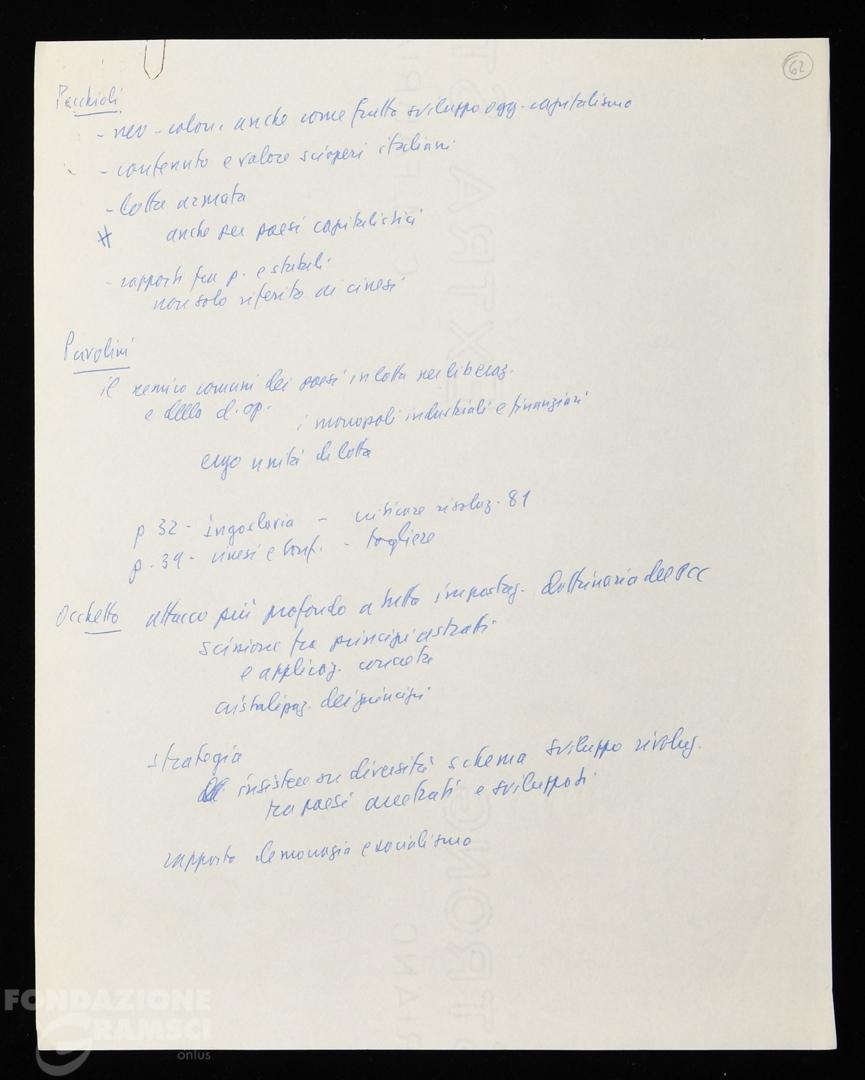 62
Pecchioli
- neo-colon. anche come frutto sviluppo ogg. capitalismo
- contenuto e valore scioperi italiani
- lotta armata
anche per paesi capitalistici
- rapporti tra p. e statali
non solo riferito ai cinesi
Pavolini
il nemico comuni dei paesi in lotta per liberaz.
e della cl. op.
i monopoli industriali e finanziari
ergo unità di lotta
p. 32 - Iugoslavia - criticare risoluz. 81
p. 39 - cinesi e conf. - togliere
Occhetto attacco più profondo a tutta impostaz. dottrinaria del PCC
scissione tra principi astratti
e applicaz. concreta
cristalizzaz. dei principi
strategia
insistere su diversità schema sviluppo rivoluz.
tra paesi arretrati e sviluppati
rapporto democrazia e socialismo
FONDAZIONE
GRAMSCI
onlus